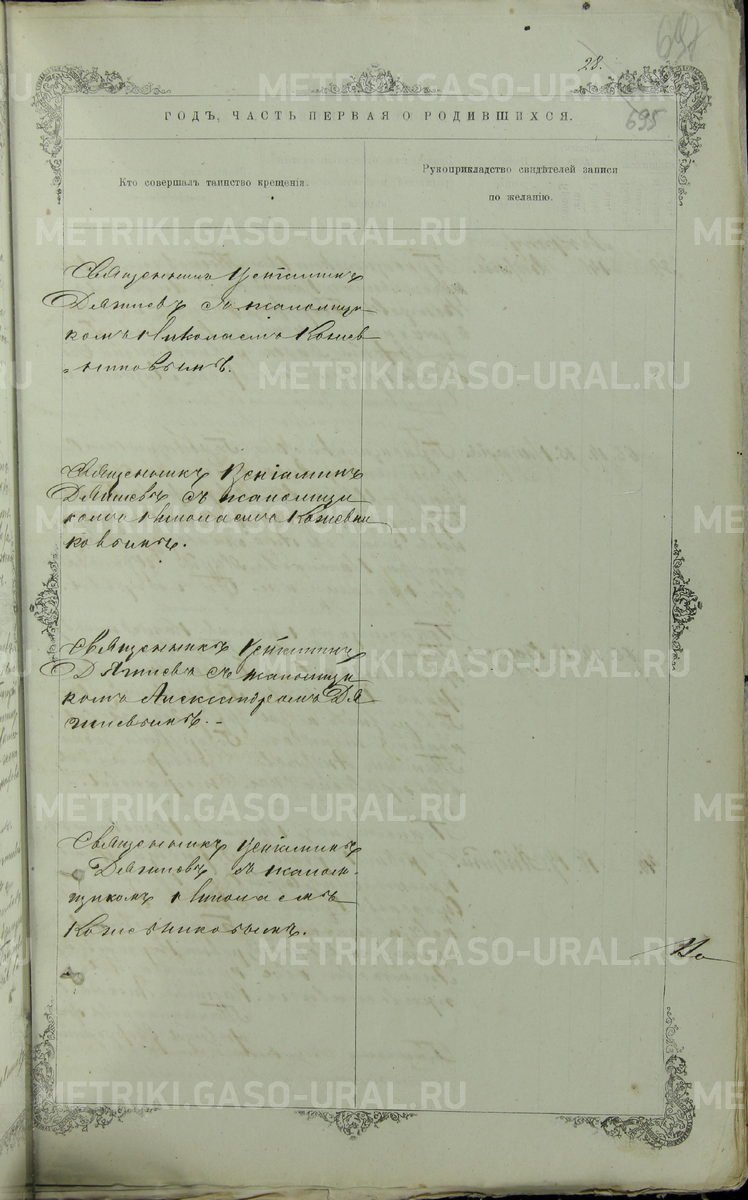 28.
695
ГОДЪ, ЧАСТЬ ПЕРВАЯ О РОДИВШИХСЯ.
Кто совершалъ таинство крещенія.
Рукоприкладство свидѣтелей записи
по желанію.
Священникъ Веніаминъ
Дягилевъ съ псаломщи
комъ Николаемъ Кожев
никовымъ.
Священникъ Веніаминъ
Дягилевъ съ псаломщи
комъ Николаемъ Кожевни
ковымъ.
Священникъ Веніаминъ
Дягилевъ съ псаломщи
комъ Александромъ Дя
гилевымъ.
Священникъ Веніаминъ
Дягилевъ съ псалом-
щикомъ Николаемъ
Кожевниковымъ.
METRIKI.GASO-URAL.RU